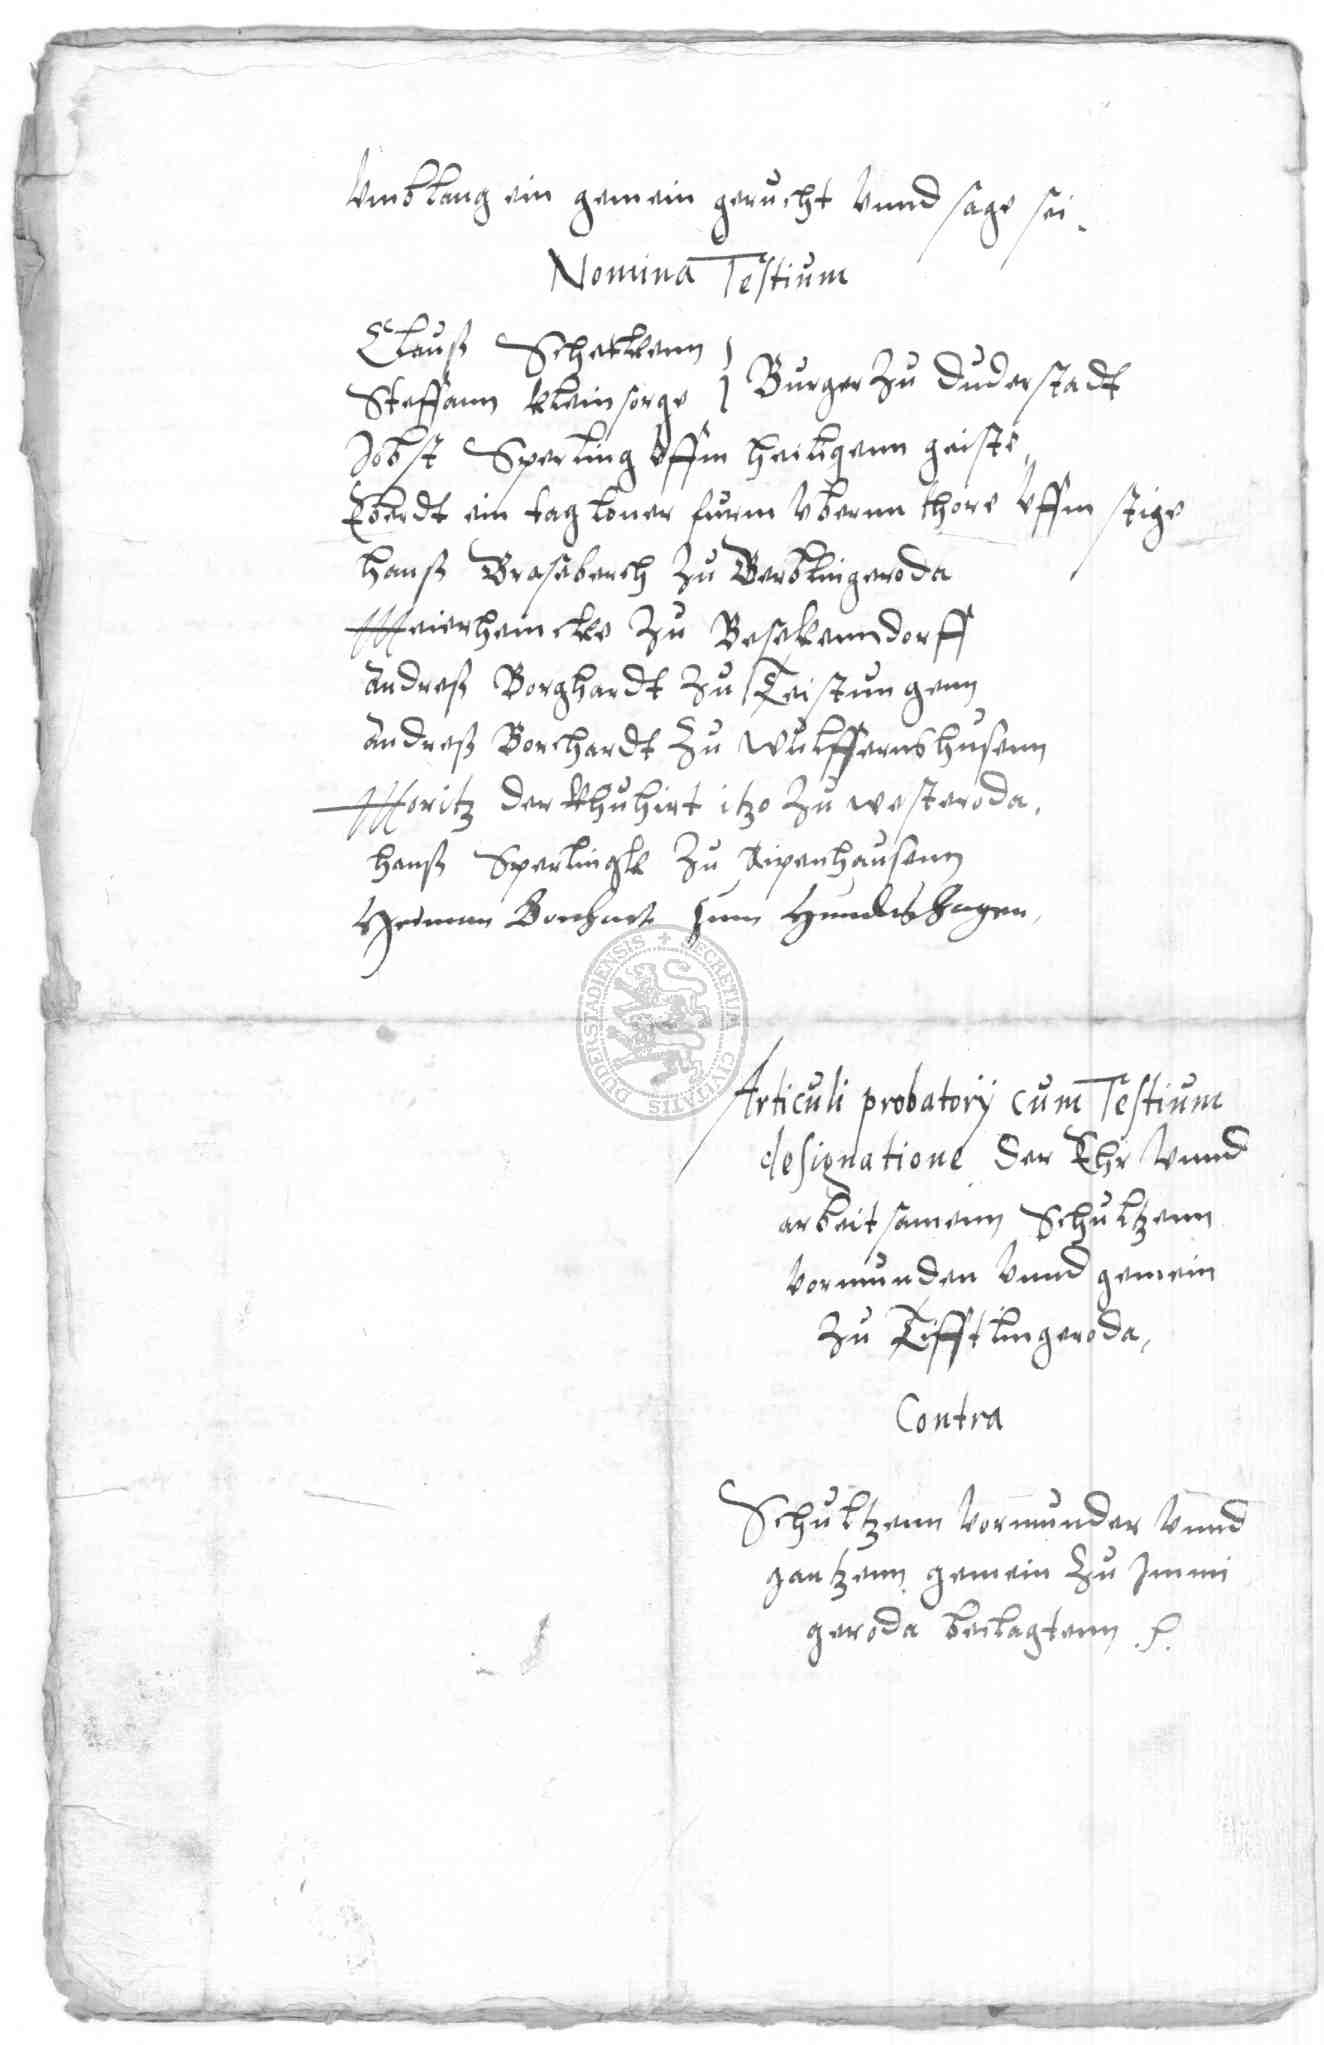 Umblang ein gemein gerucht Vnnd sage sei.
Nomina Testium
Clauß Schetlenn }
Steffann kleinsorge } Burger Zu Duderstadt
Jobst Sperling vffm heiligenn geiste,
Eberdt ein taglöner furm Vbernn thore Vffm stige
hanß Braseberch Zu Berblingeroda
Meierheincke Zu Besekenndorff
Andreß Borghardt Zu Teistungenn
Andreß Borchardt Zu Wulffernshusenn
Moritz der Khuhirt itzo Zu westeroda,
hanß Sperlingk Zu Ripenhausenn
Herman Borchart zum Hundeshagen,
DUDERSTADIENSIS + SECRETUM CIVITATIS
Articuli probatorij cum Testium
designatione der Ehr Vnnd
arbeitsamenn Schultzenn
Vormunden Vnnd gemein
Zu Tifftlingeroda,
Contra
Schultzenn Vormunder Vnnd
gantzenn gemein Zu Immi
geroda beclagtenn